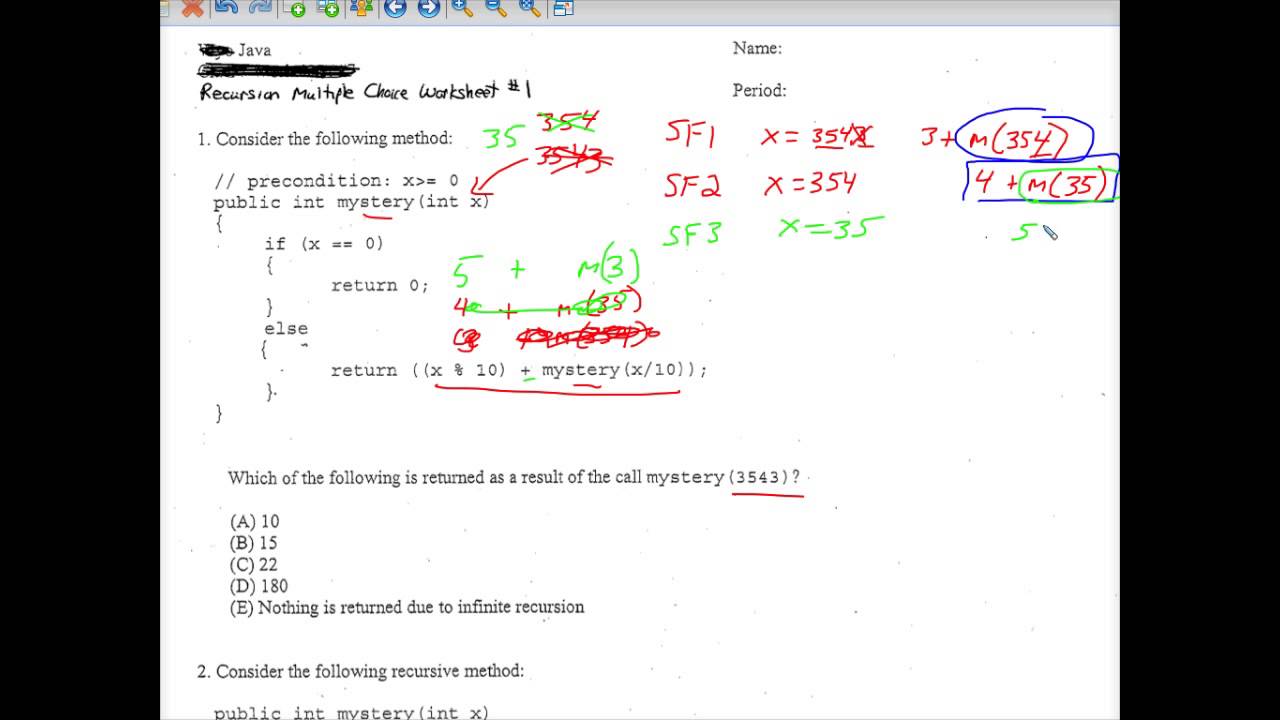 Java
Name:
Recursion Multiple Choice Worksheet #1
Period:
1. Consider the following method:
35
354
3543
SF1 x = 3543 3 + m(354)
SF2 x = 354 4 + m(35)
SF3 x = 35 5
// precondition: x>= 0
public int mystery(int x)
{
if (x == 0)
{
return 0;
}
else
{
5 + m(3)
4 + m(35)
3 + m(354)
return ((x % 10) + mystery(x/10));
}
}
Which of the following is returned as a result of the call mystery(3543)?
(A) 10
(B) 15
(C) 22
(D) 180
(E) Nothing is returned due to infinite recursion
2. Consider the following recursive method:
public int mystery(int x)